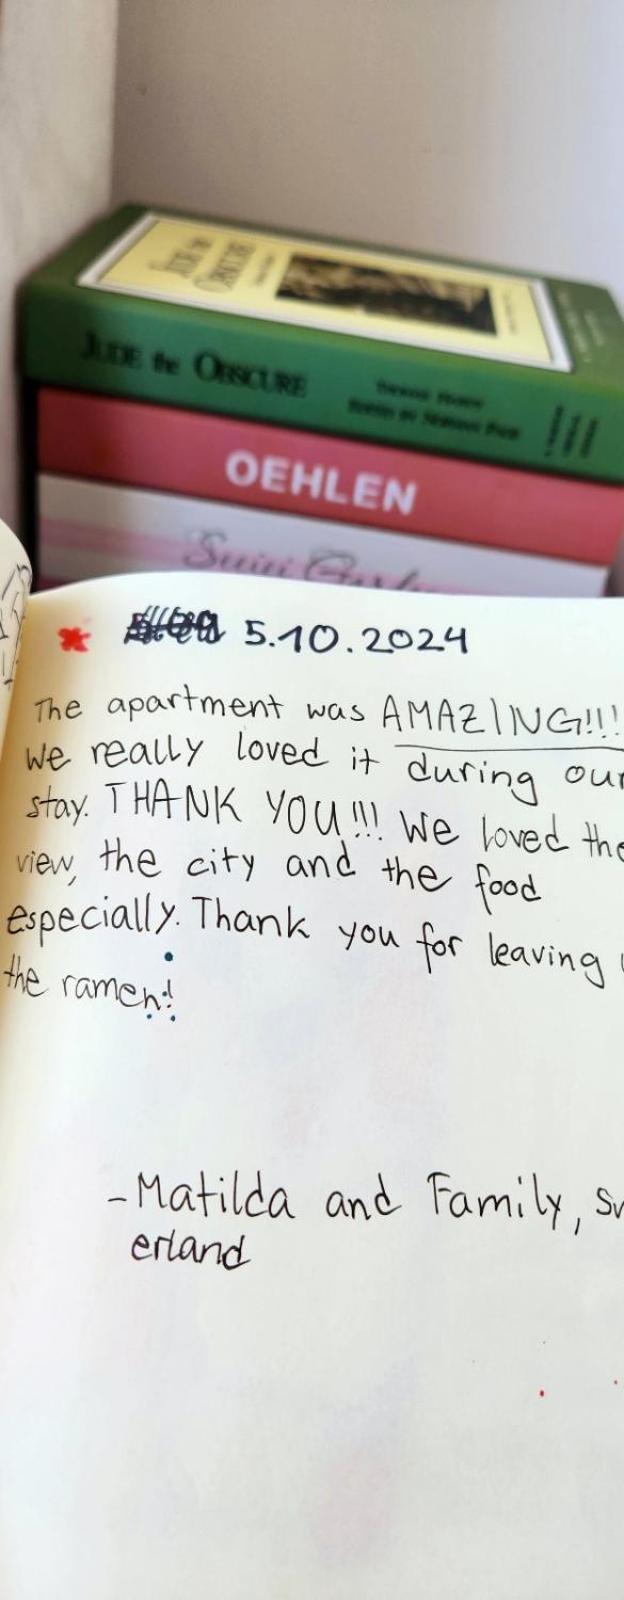 JUDE the OBSCURE
JUDE the OBSCURE
OEHLEN
5.10.2024
The apartment was AMAZING!!!
We really loved it during our
stay. THANK YOU!!! We loved the
view, the city and the food
especially. Thank you for leaving
the ramen!
-Matilda and Family, Sw
erland